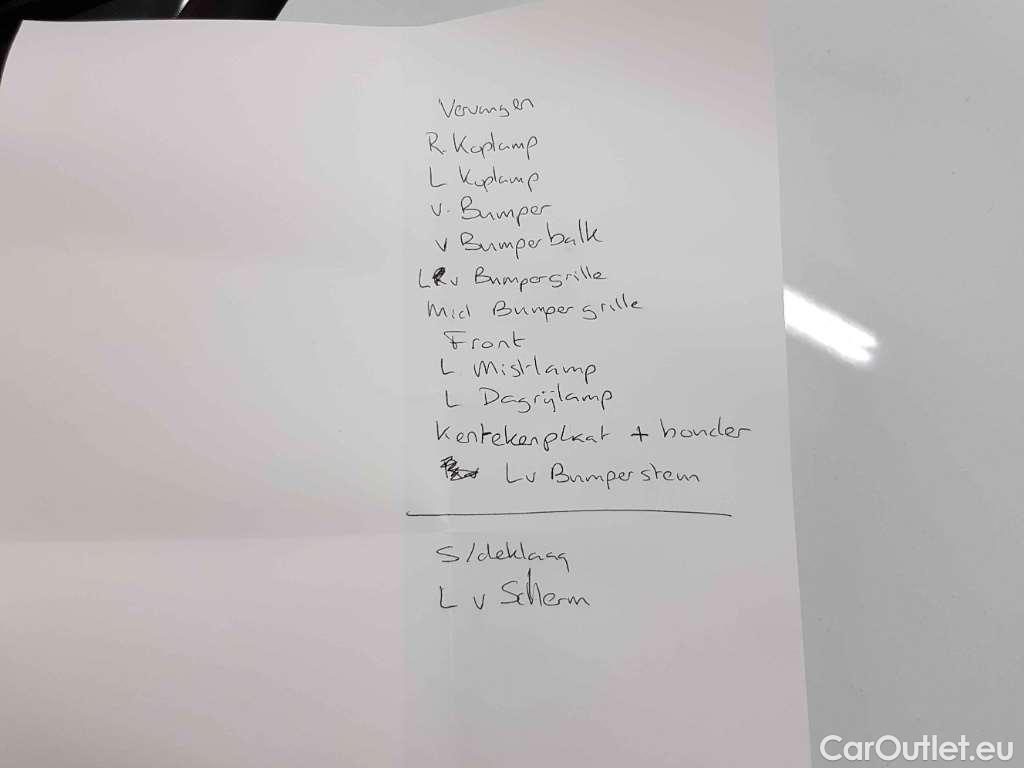 Vervangen
R. Koplamp
L Koplamp
v. Bumper
v Bumperbalk
L v Bumpergrille
Mid Bumpergrille
Front
L Mistlamp
L Dagrijlamp
Kentekenplaat + houder
Lv Bumpersteun
S/deklaag
L v Scherm
CarOutlet.eu